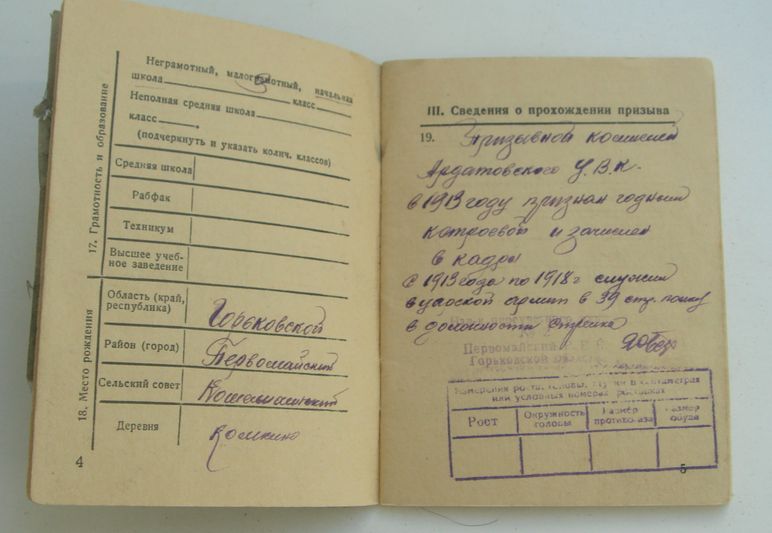 17. Грамотность и образование
Неграмотный, малограмотный, начальная
школа класс
Неполная средняя школа
класс
(подчеркнуть и указать колич. классов)
Средняя школа
Рабфак
Техникум
Высшее учеб-
ное заведение
18. Место рождения
Область (край,
республика) Горьковской
Район (город) Первомайский
Сельский совет
Деревня
4
III. Сведения о прохождении призыва
19. Призывной комиссией
Ардатовского У.В.К.
в 1913 году признан годным
к строевой и зачислен
в кадры
С 1913 года по 1918 г служил
в царской армии в 39 стр. полку
в должности стрелка
Первомайский
Горьковской области
Измерения роста, головы, в сантиметрах
или условных номерах
Рост
Окружность
головы
Размер
противогаза
Размер
обуви
5